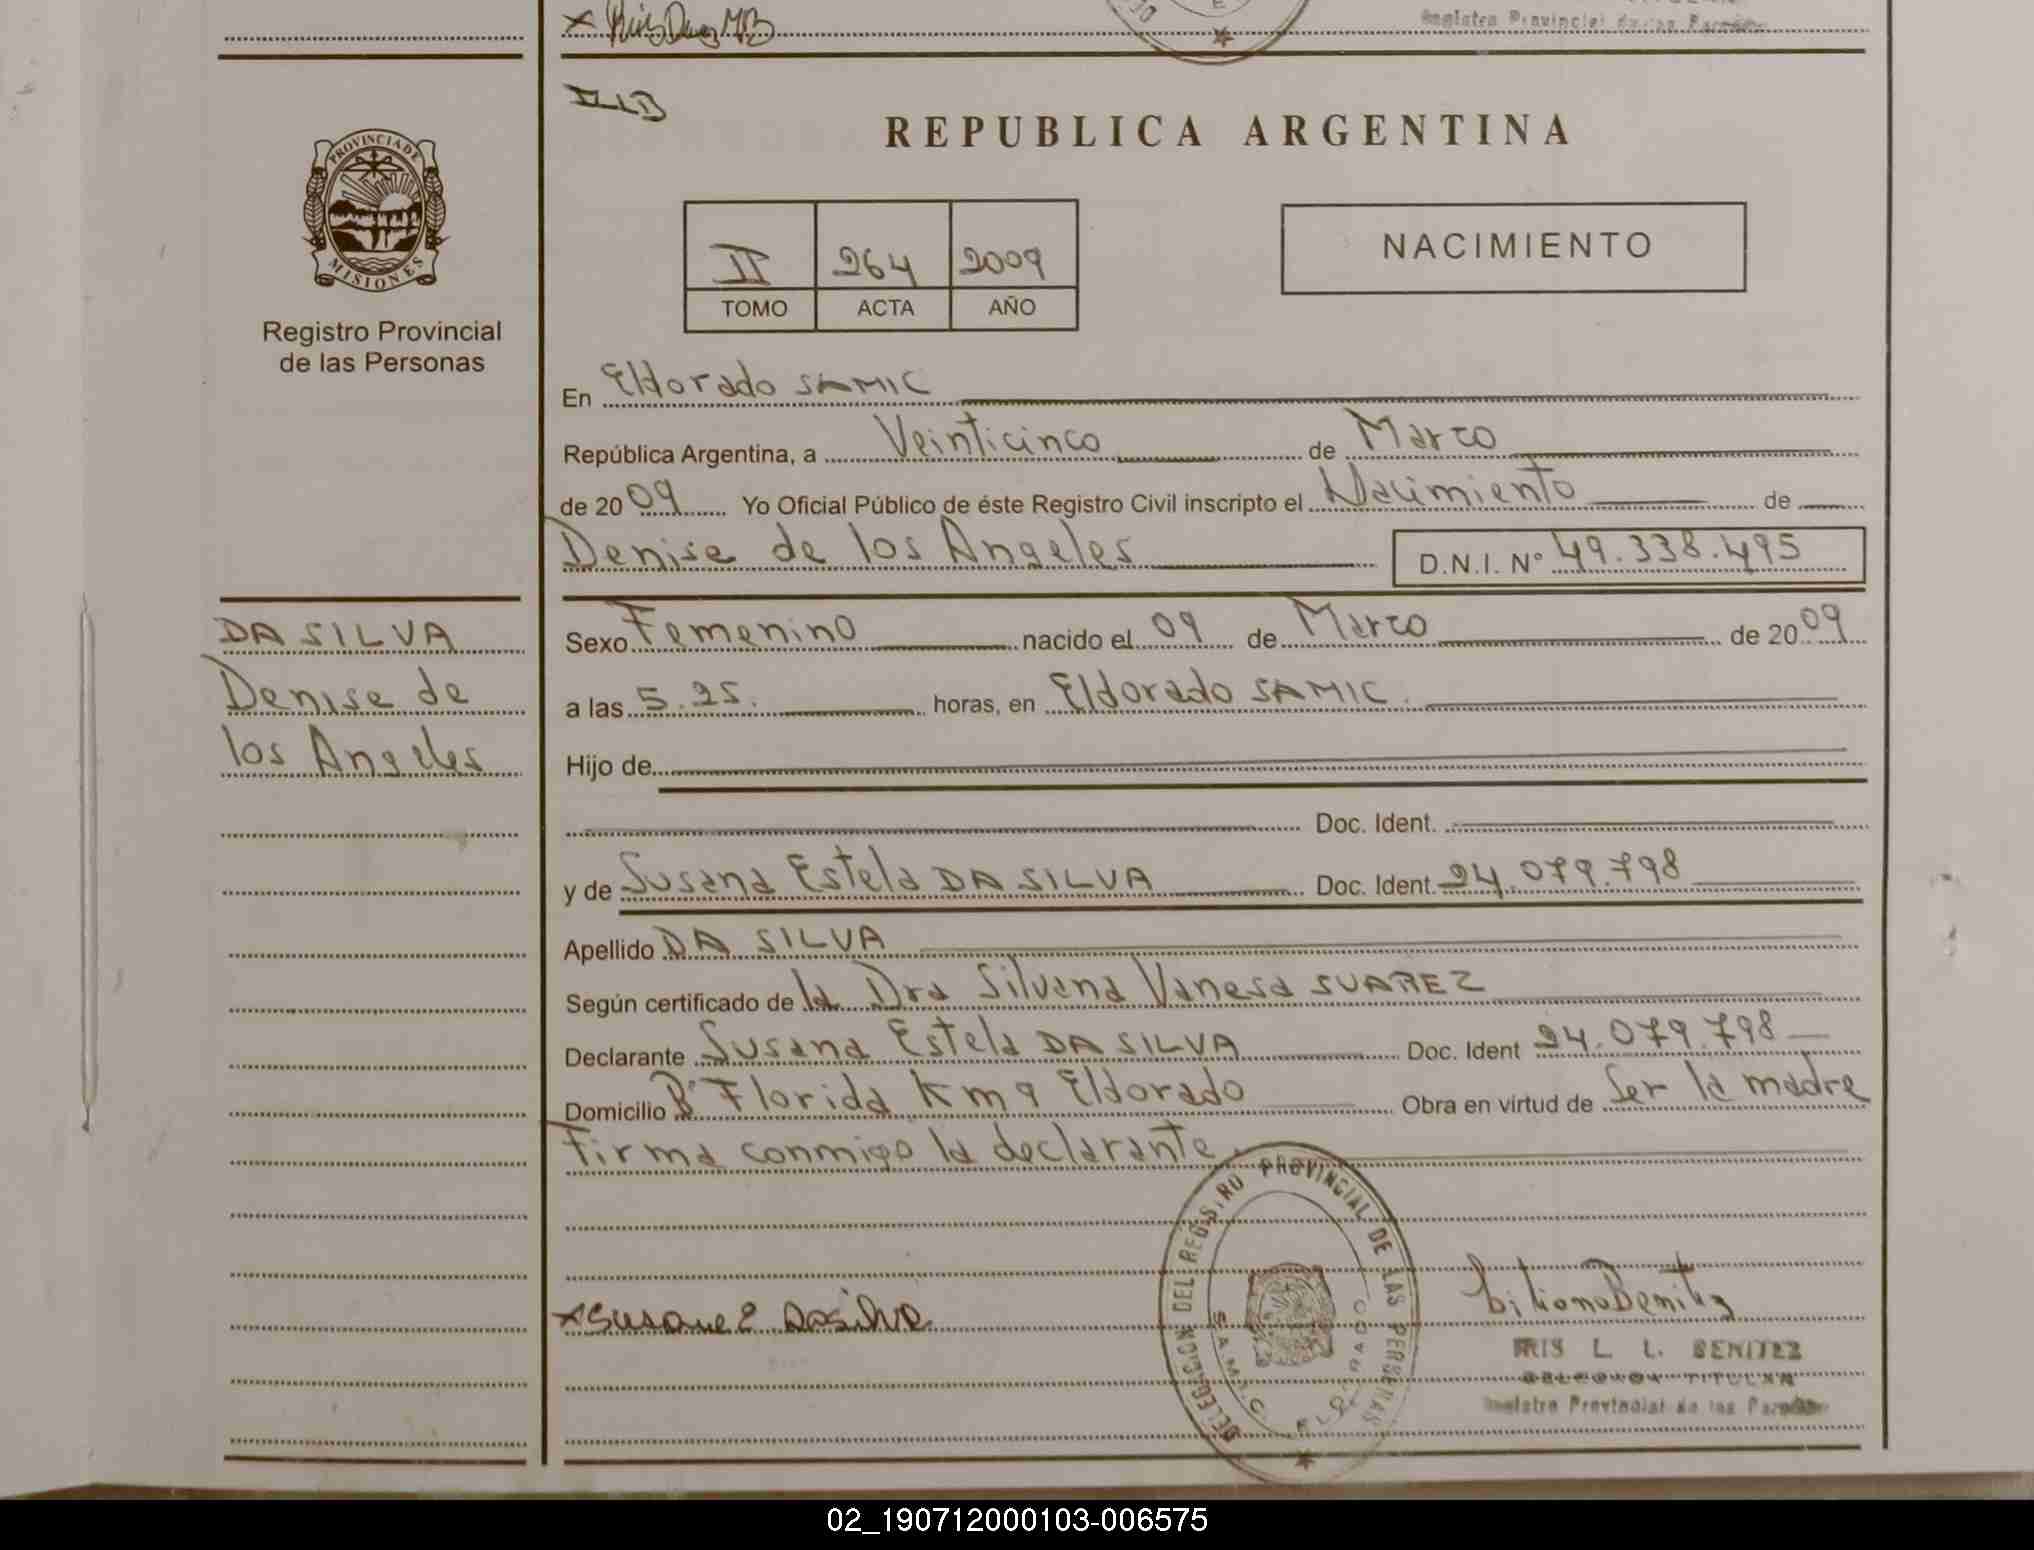 REPUBLICA ARGENTINA
PROVINCIA DE
MISIONES
Registro Provincial
de las Personas
II 264 2009
TOMO ACTA AÑO
NACIMIENTO
En Eldorado SAMIC
República Argentina, a Veinticinco de Marzo
de 2009 Yo Oficial Público de éste Registro Civil inscripto el Nacimiento de
Denise de los Angeles D.N.I. Nº 49.338.495
DA SILVA
Denise de
los Angeles
Sexo Femenino nacido el 09 de Marzo de 2009
a las 5.25. horas, en Eldorado SAMIC.
Hijo de
Doc. Ident.
y de Susana Estela DA SILVA Doc. Ident. 24.079.798
Apellido DA SILVA
Según certificado de la Dra Silvana Vanesa SUAREZ
Declarante Susana Estela DA SILVA Doc. Ident 24.079.798
Domicilio Bº Florida Km 9 Eldorado Obra en virtud de Ser la madre
Firma conmigo la declarante.
DELEGACION DEL REGISTRO PROVINCIAL DE LAS PERSONAS
S.A.M.I.C. ELDORADO
x Susana E Dasilva
IRIS L. L. BENITEZ
DELEGADA TITULAR
Registro Provincial de las Personas
02_190712000103-006575